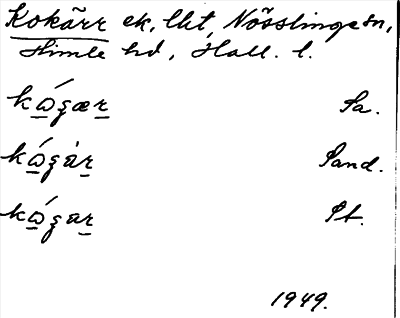 Kokärr ek, lht, Nösslinge sn,
Himle hd, Hall. l.
kǻgær Sa.
kǻgàr Sand.
kǻgar St.
1949.